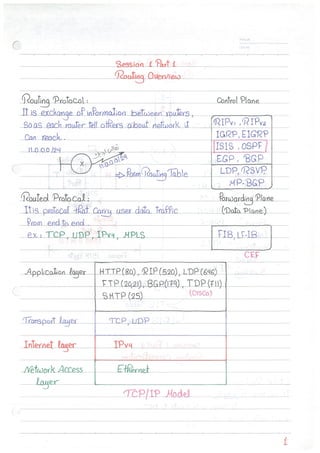 Session 1 Part 1
Routing Overview
Routing Protocol:
It is exchange of information between routers,
so as each router tell others about network it
Can reach.
11.0.0.0/24
X
11.0.0.0/24
Form Routing Table
Control Plane
RIPv1, RIPv2
IGRP, EIGRP
ISIS, OSPF
EGP, BGP
LDP, RSVP
MP-BGP
Routed Protocol:
It is protocol that Carry user data traffic
from end to end
ex: TCP, UDP, IPv4, MPLS
Forwarding Plane
(Data Plane)
FIB, LFIB
CEF
Application layer
HTTP(80), RIP(520), LDP(646)
FTP(20,21), BGP(179), TDP(711)
SMTP(25) (CISCO)
Transport layer
TCP, UDP
Internet layer
IPv4
Network Access
layer
Ethernet
TCP/IP Model
1